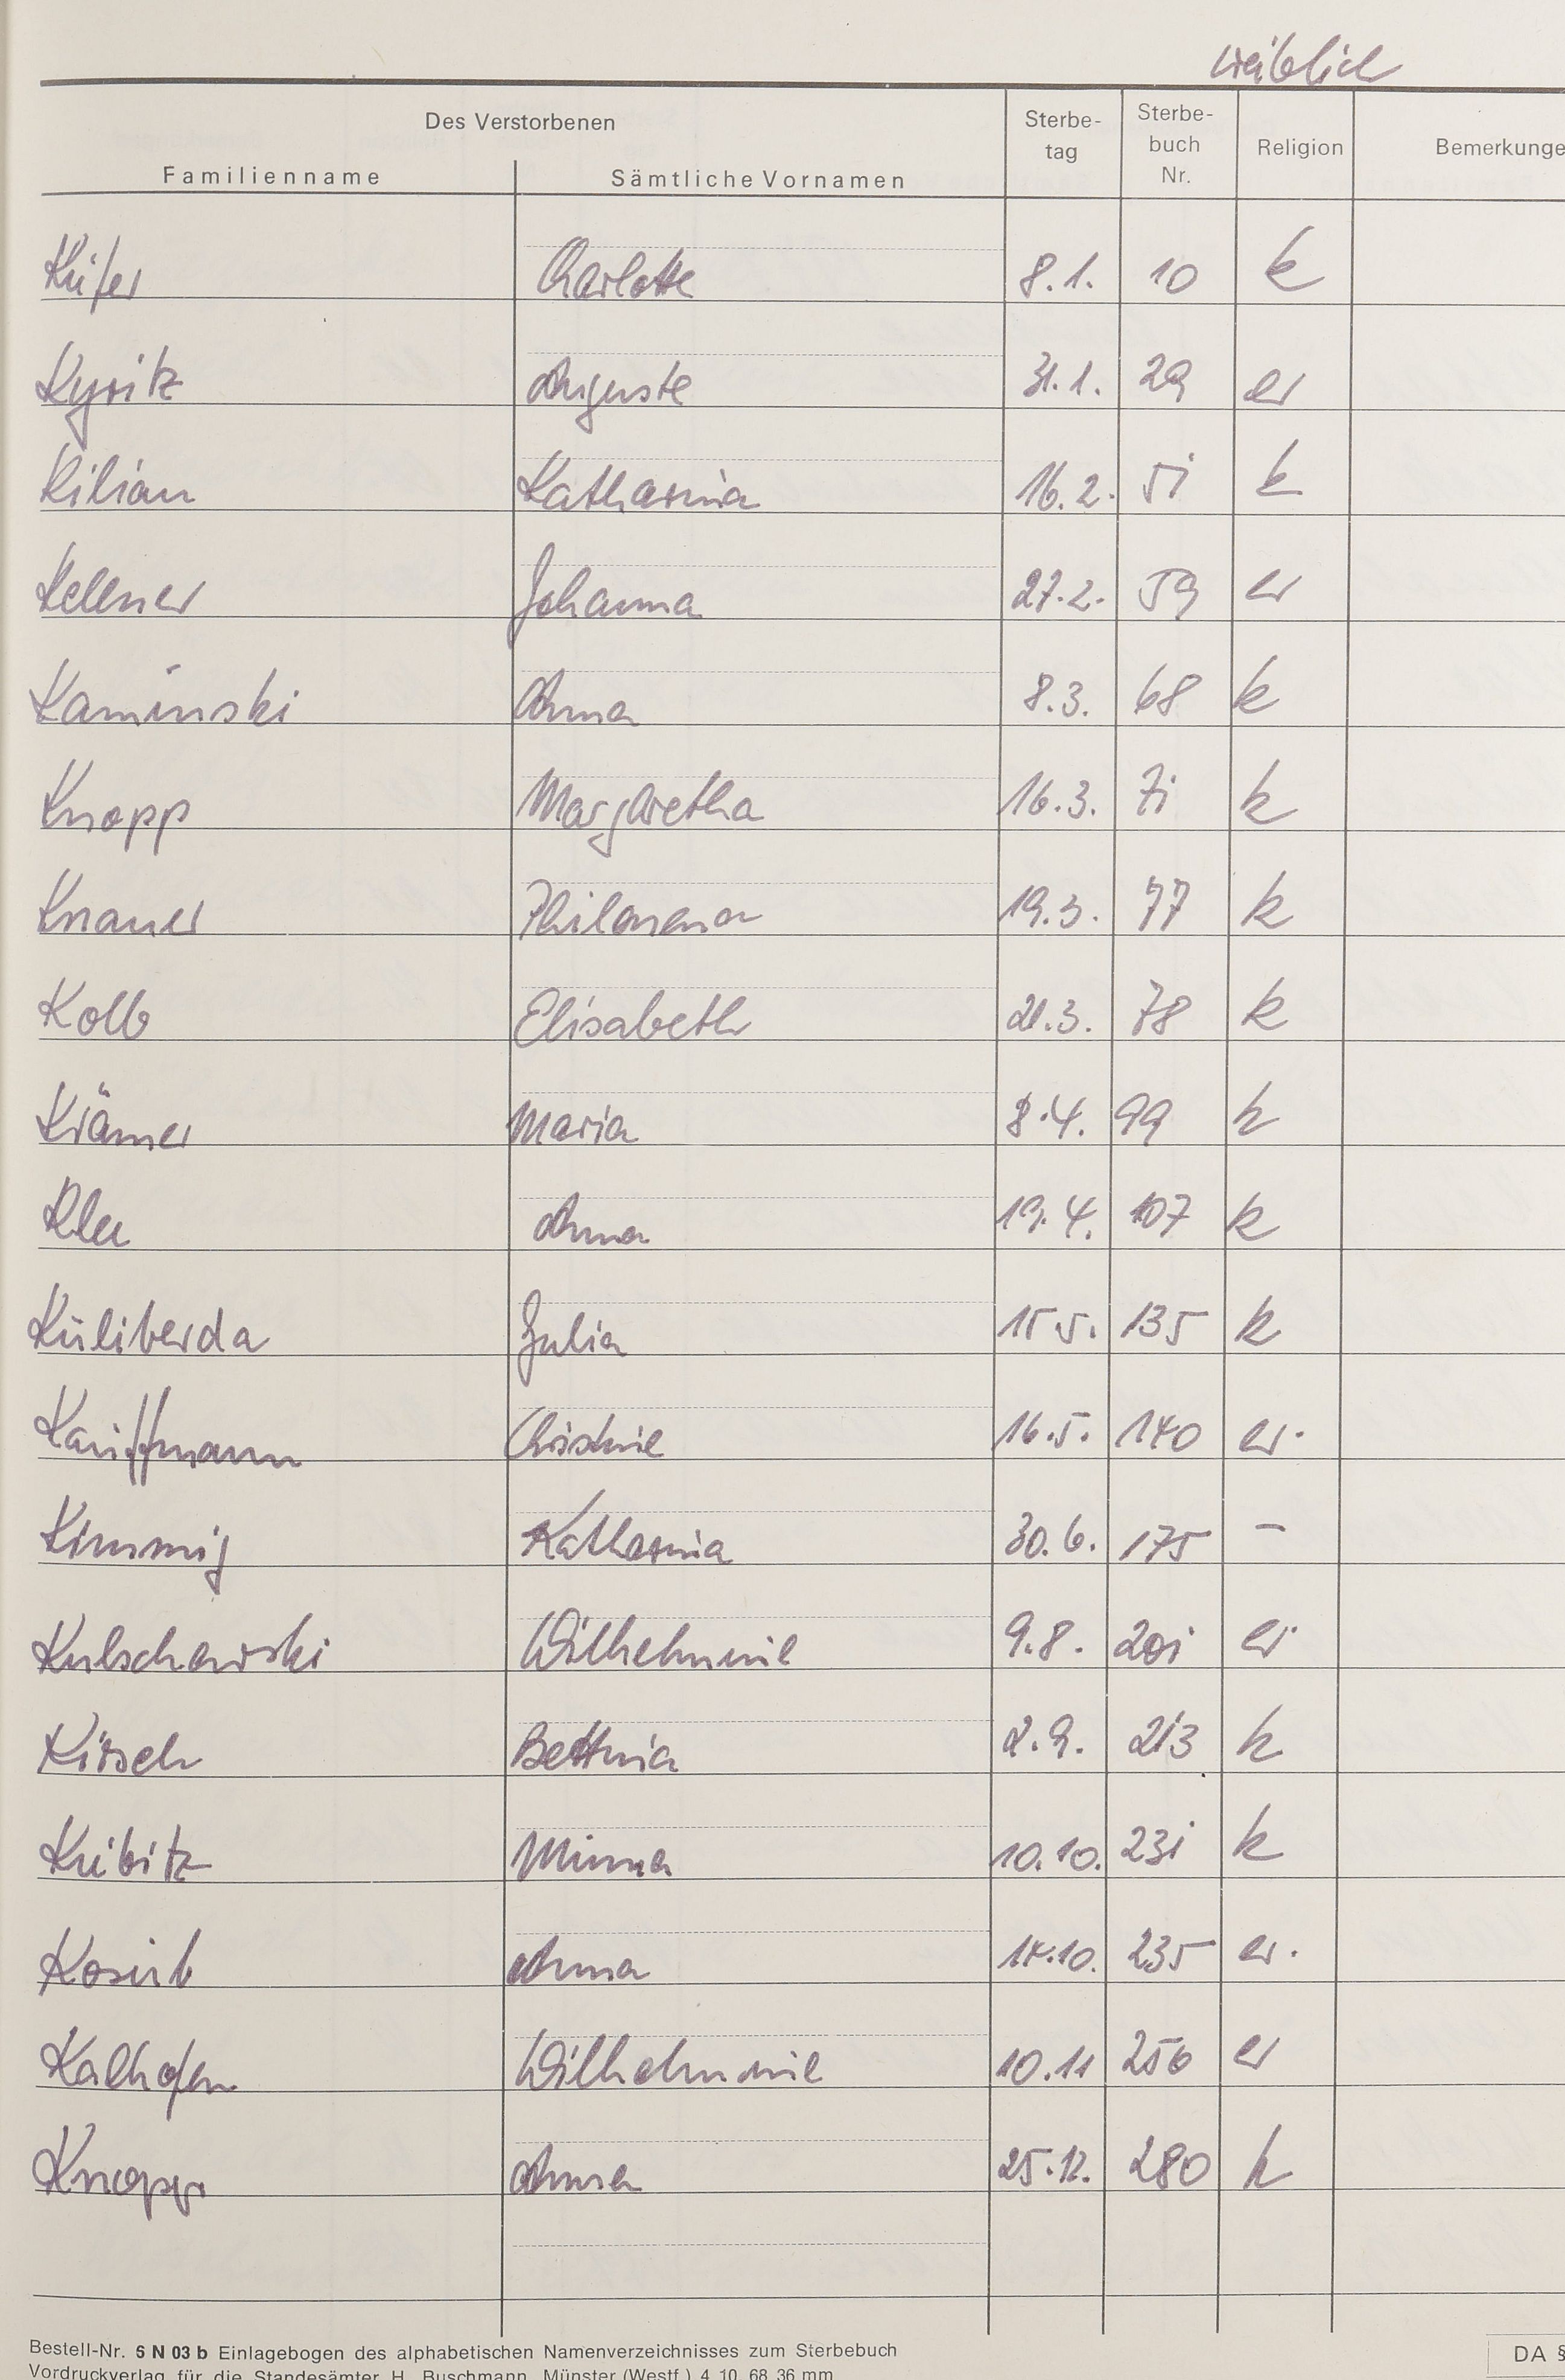 weiblich
Des Verstorbenen Sterbe- Sterbe-
tag buch Religion Bemerkunge
Familienname Sämtliche Vornamen Nr.
Küfer Charlotte 8.1. 10 k
Kyritz Auguste 31.1. 29 ev
Kilian Katharina 16.2. 51 k
Kellner Johanna 27.2. 59 ev
Kaminski Anna 8.3. 68 k
Knopp Margaretha 16.3. 71 k
Knauer Philomena 19.3. 77 k
Kolb Elisabeth 21.3. 78 k
Krämer Maria 8.4. 99 k
Klee Anna 19.4. 107 k
Kuliberda Julia 15.5. 135 k
Kauffmann Christine 16.5. 140 ev.
Kimmig Katharina 30.6. 175 –
Kulschewski Wilhelmine 9.8. 201 ev.
Kirsch Bettina 2.9. 213 k
Kubitz Minna 10.10. 231 k
Anna 14.10. 235 ev.
Kalhofen Wilhelmine 10.11 256 ev
Knopp Anna 25.12. 280 k
Bestell-Nr. 5 N 03 b Einlagebogen des alphabetischen Namenverzeichnisses zum Sterbebuch DA §
Vordruckverlag für die Standesämter H. Buschmann, Münster (Westf.) 4.10. 68 36 mm